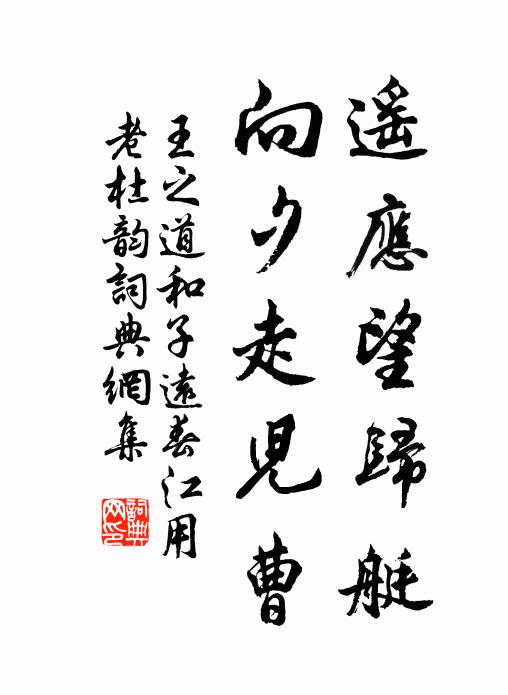 遥應望歸艇
向夕走児曹
王之道和子遠春江用
老杜韵詞典網集
詞典
网印